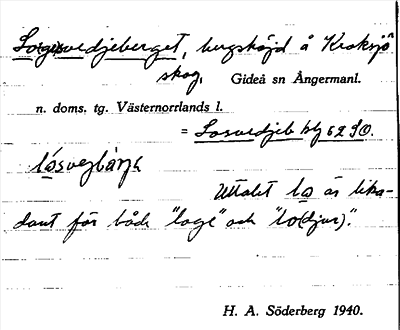 Lo(ge)svedjeberget, bergshöjd å Kroksjö
skog, Gideå sn Ångermanl.
n. doms. tg. Västernorrlands l.
= Losvedjeb blg 62 SO.
Uttalet lo är lika-
dant för både "loge" och "lo(djur)".
H. A. Söderberg 1940.